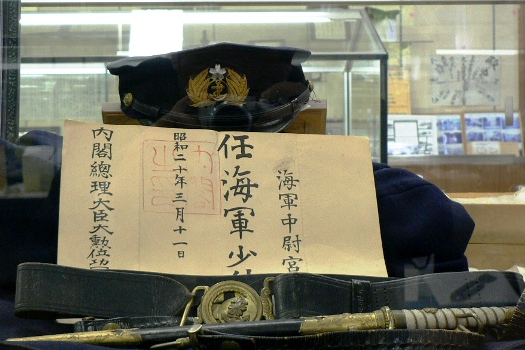 海軍中尉宮
任海軍少
昭和二十年三月十一日
内閣總理大臣大勲位功